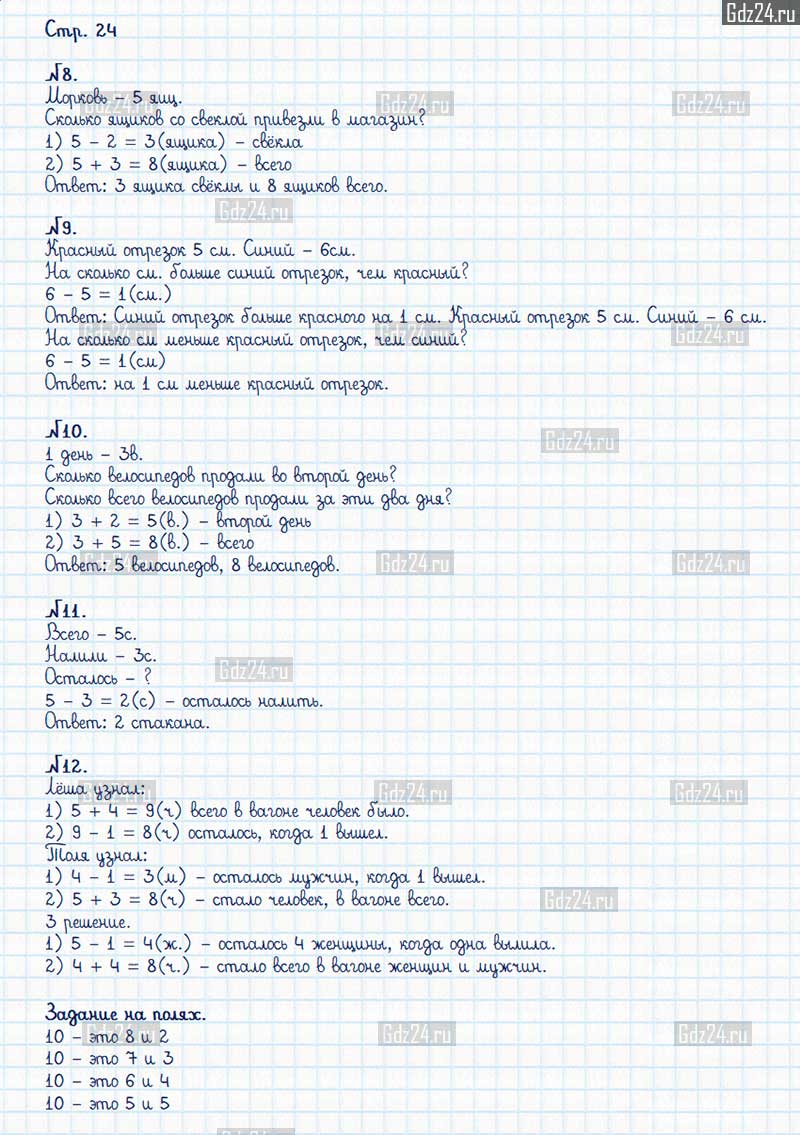 Gdz24.ru
Стр. 24
№8.
Морковь – 5 ящ.
Сколько ящиков со свеклой привезли в магазин?
1) 5 – 2 = 3(ящика) – свёкла
2) 5 + 3 = 8(ящика) – всего
Ответ: 3 ящика свёклы и 8 ящиков всего.
№9.
Красный отрезок 5 см. Синий – 6см.
На сколько см. больше синий отрезок, чем красный?
6 – 5 = 1(см.)
Ответ: Синий отрезок больше красного на 1 см. Красный отрезок 5 см. Синий – 6 см.
На сколько см меньше красный отрезок, чем синий?
6 – 5 = 1(см)
Ответ: на 1 см меньше красный отрезок.
№10.
1 день – 3в.
Сколько велосипедов продали во второй день?
Сколько всего велосипедов продали за эти два дня?
1) 3 + 2 = 5(в.) – второй день
2) 3 + 5 = 8(в.) – всего
Ответ: 5 велосипедов, 8 велосипедов.
№11.
Всего – 5с.
Налили – 3с.
Осталось – ?
5 – 3 = 2(с) – осталось налить.
Ответ: 2 стакана.
№12.
Лёша узнал:
1) 5 + 4 = 9(ч) всего в вагоне человек было.
2) 9 – 1 = 8(ч) осталось, когда 1 вышел.
Толя узнал:
1) 4 – 1 = 3(м) – осталось мужчин, когда 1 вышел.
2) 5 + 3 = 8(ч) – стало человек, в вагоне всего.
3 решение.
1) 5 – 1 = 4(ж.) – осталось 4 женщины, когда одна вышла.
2) 4 + 4 = 8(ч.) – стало всего в вагоне женщин и мужчин.
Задание на полях.
10 – это 8 и 2
10 – это 7 и 3
10 – это 6 и 4
10 – это 5 и 5